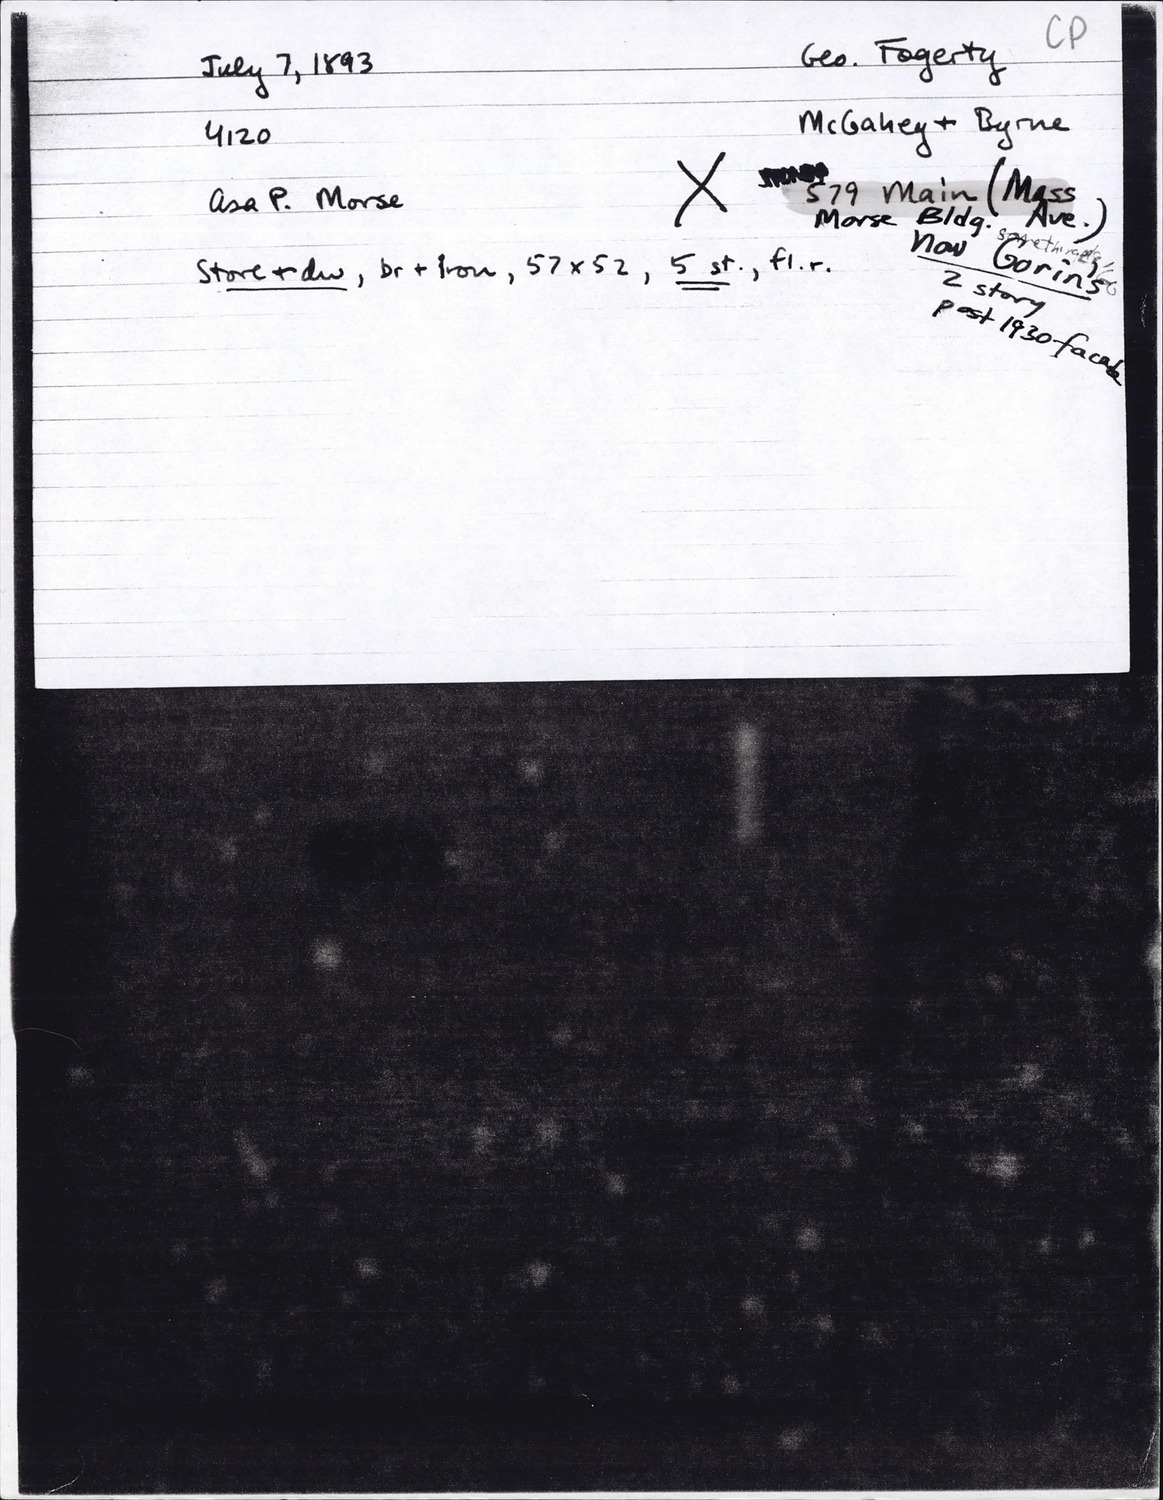 CP
July 7, 1893
Geo. Fogerty
4120
McGahey + Byrne
Asa P. Morse
X
579 Main (Mass Ave.)
Morse Bldg.
now Gorin's
2 story
post 1930 facade
Store + dw, br + iron, 57 x 52, 5 st., fl.r.